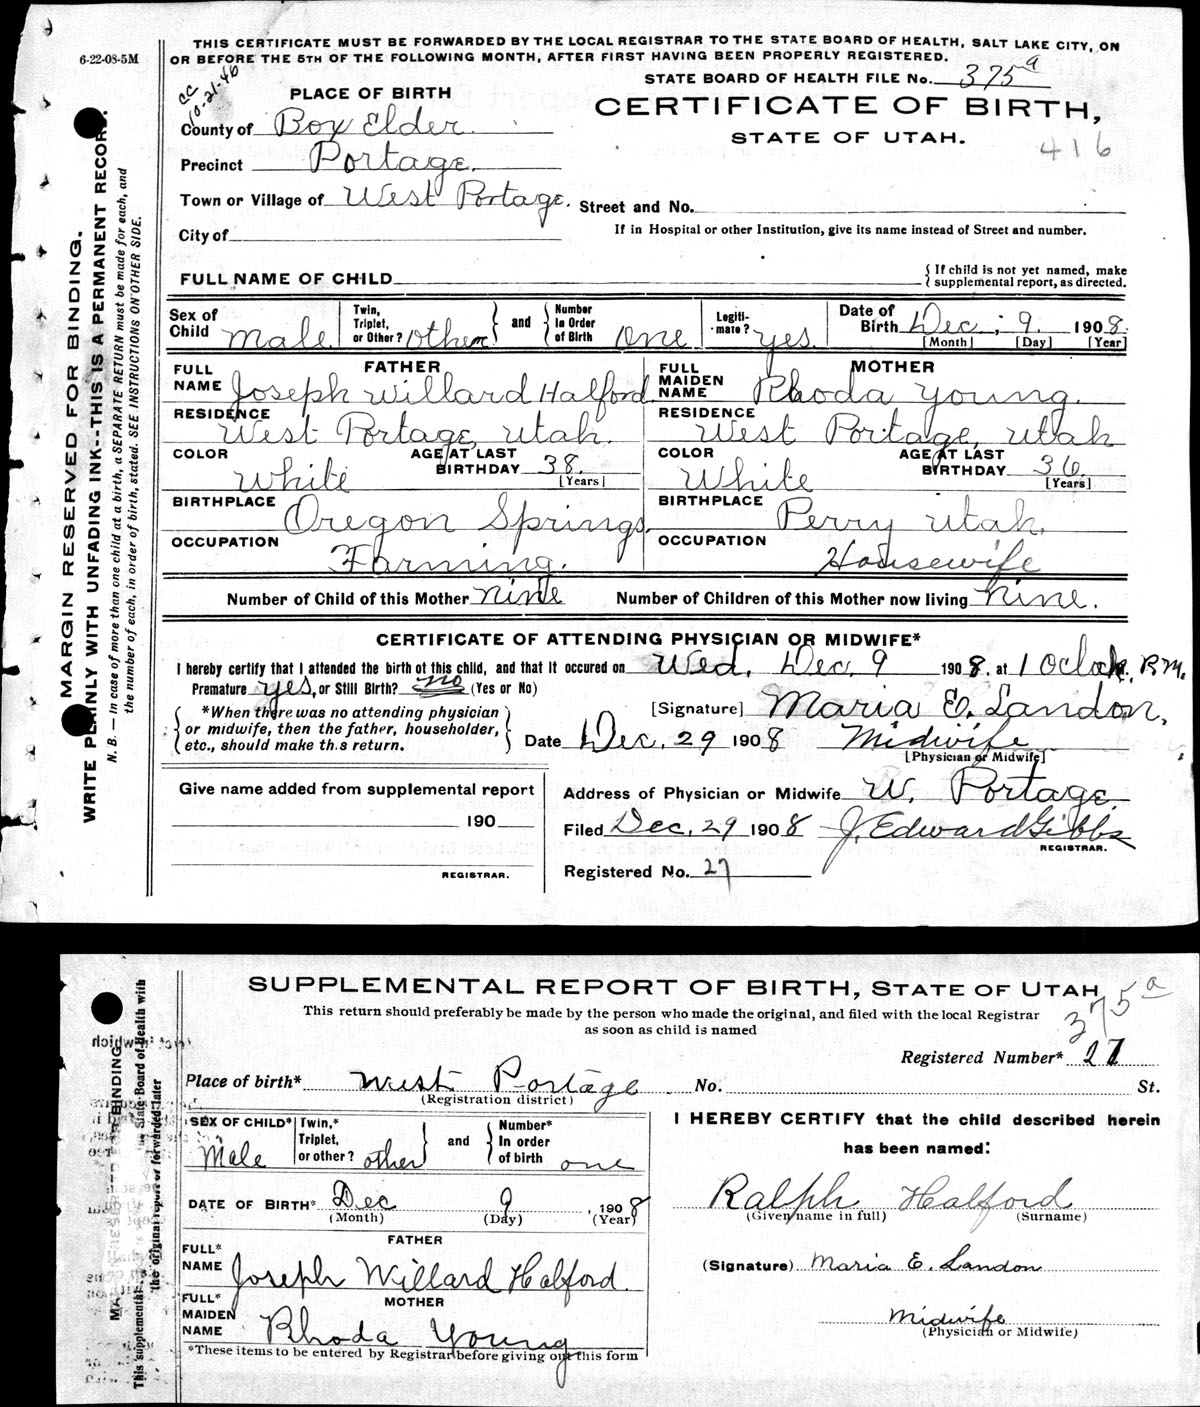 6-22-08-5M
THIS CERTIFICATE MUST BE FORWARDED BY THE LOCAL REGISTRAR TO THE STATE BOARD OF HEALTH, SALT LAKE CITY, ON
OR BEFORE THE 5TH OF THE FOLLOWING MONTH, AFTER FIRST HAVING BEEN PROPERLY REGISTERED.
CC
10-21-46
STATE BOARD OF HEALTH FILE No. 375a
PLACE OF BIRTH
CERTIFICATE OF BIRTH,
STATE OF UTAH.
416
County of Box Elder.
Precinct Portage.
Town or Village of West Portage. Street and No.
City of
If in Hospital or other Institution, give its name instead of Street and number.
FULL NAME OF CHILD
{ If child is not yet named, make
supplemental report, as directed.
Sex of Child Male. Twin, Triplet, or Other? other and Number In Order of Birth One Legiti-mate? yes. Date of Birth Dec. 9. 1908.
[Month] [Day] [Year]
FATHER MOTHER
FULL NAME Joseph Willard Halford FULL MAIDEN NAME Rhoda Young.
RESIDENCE West Portage, Utah. RESIDENCE West Portage, Utah
COLOR White AGE AT LAST BIRTHDAY 38. [Years] COLOR White AGE AT LAST BIRTHDAY 36. [Years]
BIRTHPLACE Oregon Springs. BIRTHPLACE Perry Utah.
OCCUPATION Farming. OCCUPATION Housewife
Number of Child of this Mother nine Number of Children of this Mother now living nine.
CERTIFICATE OF ATTENDING PHYSICIAN OR MIDWIFE*
I hereby certify that I attended the birth of this child, and that it occured on Wed, Dec. 9 1908. at 1 Oclock, P.M.
Premature yes, or Still Birth? no (Yes or No)
*When there was no attending physician
or midwife, then the father, householder,
etc., should make this return.
[Signature] Maria E. Landon,
Date Dec. 29 1908 Midwife
[Physician or Midwife]
Give name added from supplemental report
190
REGISTRAR.
Address of Physician or Midwife W. Portage.
Filed Dec, 29 1908 J. Edward Gibbs
REGISTRAR.
Registered No. 27
MARGIN RESERVED FOR BINDING.
WRITE PLAINLY WITH UNFADING INK--THIS IS A PERMANENT RECORD.
N. B. — In case of more than one child at a birth, a SEPARATE RETURN must be made for each, and
the number of each, in order of birth, stated. SEE INSTRUCTIONS ON OTHER SIDE.
SUPPLEMENTAL REPORT OF BIRTH, STATE OF UTAH
This return should preferably be made by the person who made the original, and filed with the local Registrar
as soon as child is named
375a
Registered Number* 27
Place of birth* West Portage No. St.
(Registration district)
SEX OF CHILD* Male Twin,* Triplet, or other? other and Number* In order of birth one
DATE OF BIRTH* Dec 9 1908
(Month) (Day) (Year)
FATHER
FULL* NAME Joseph Willard Halford.
MOTHER
FULL* MAIDEN NAME Rhoda Young
*These items to be entered by Registrar before giving out this form
I HEREBY CERTIFY that the child described herein
has been named:
Ralph Halford
(Given name in full) (Surname)
(Signature) Maria E. Landon
Midwife
(Physician or Midwife)